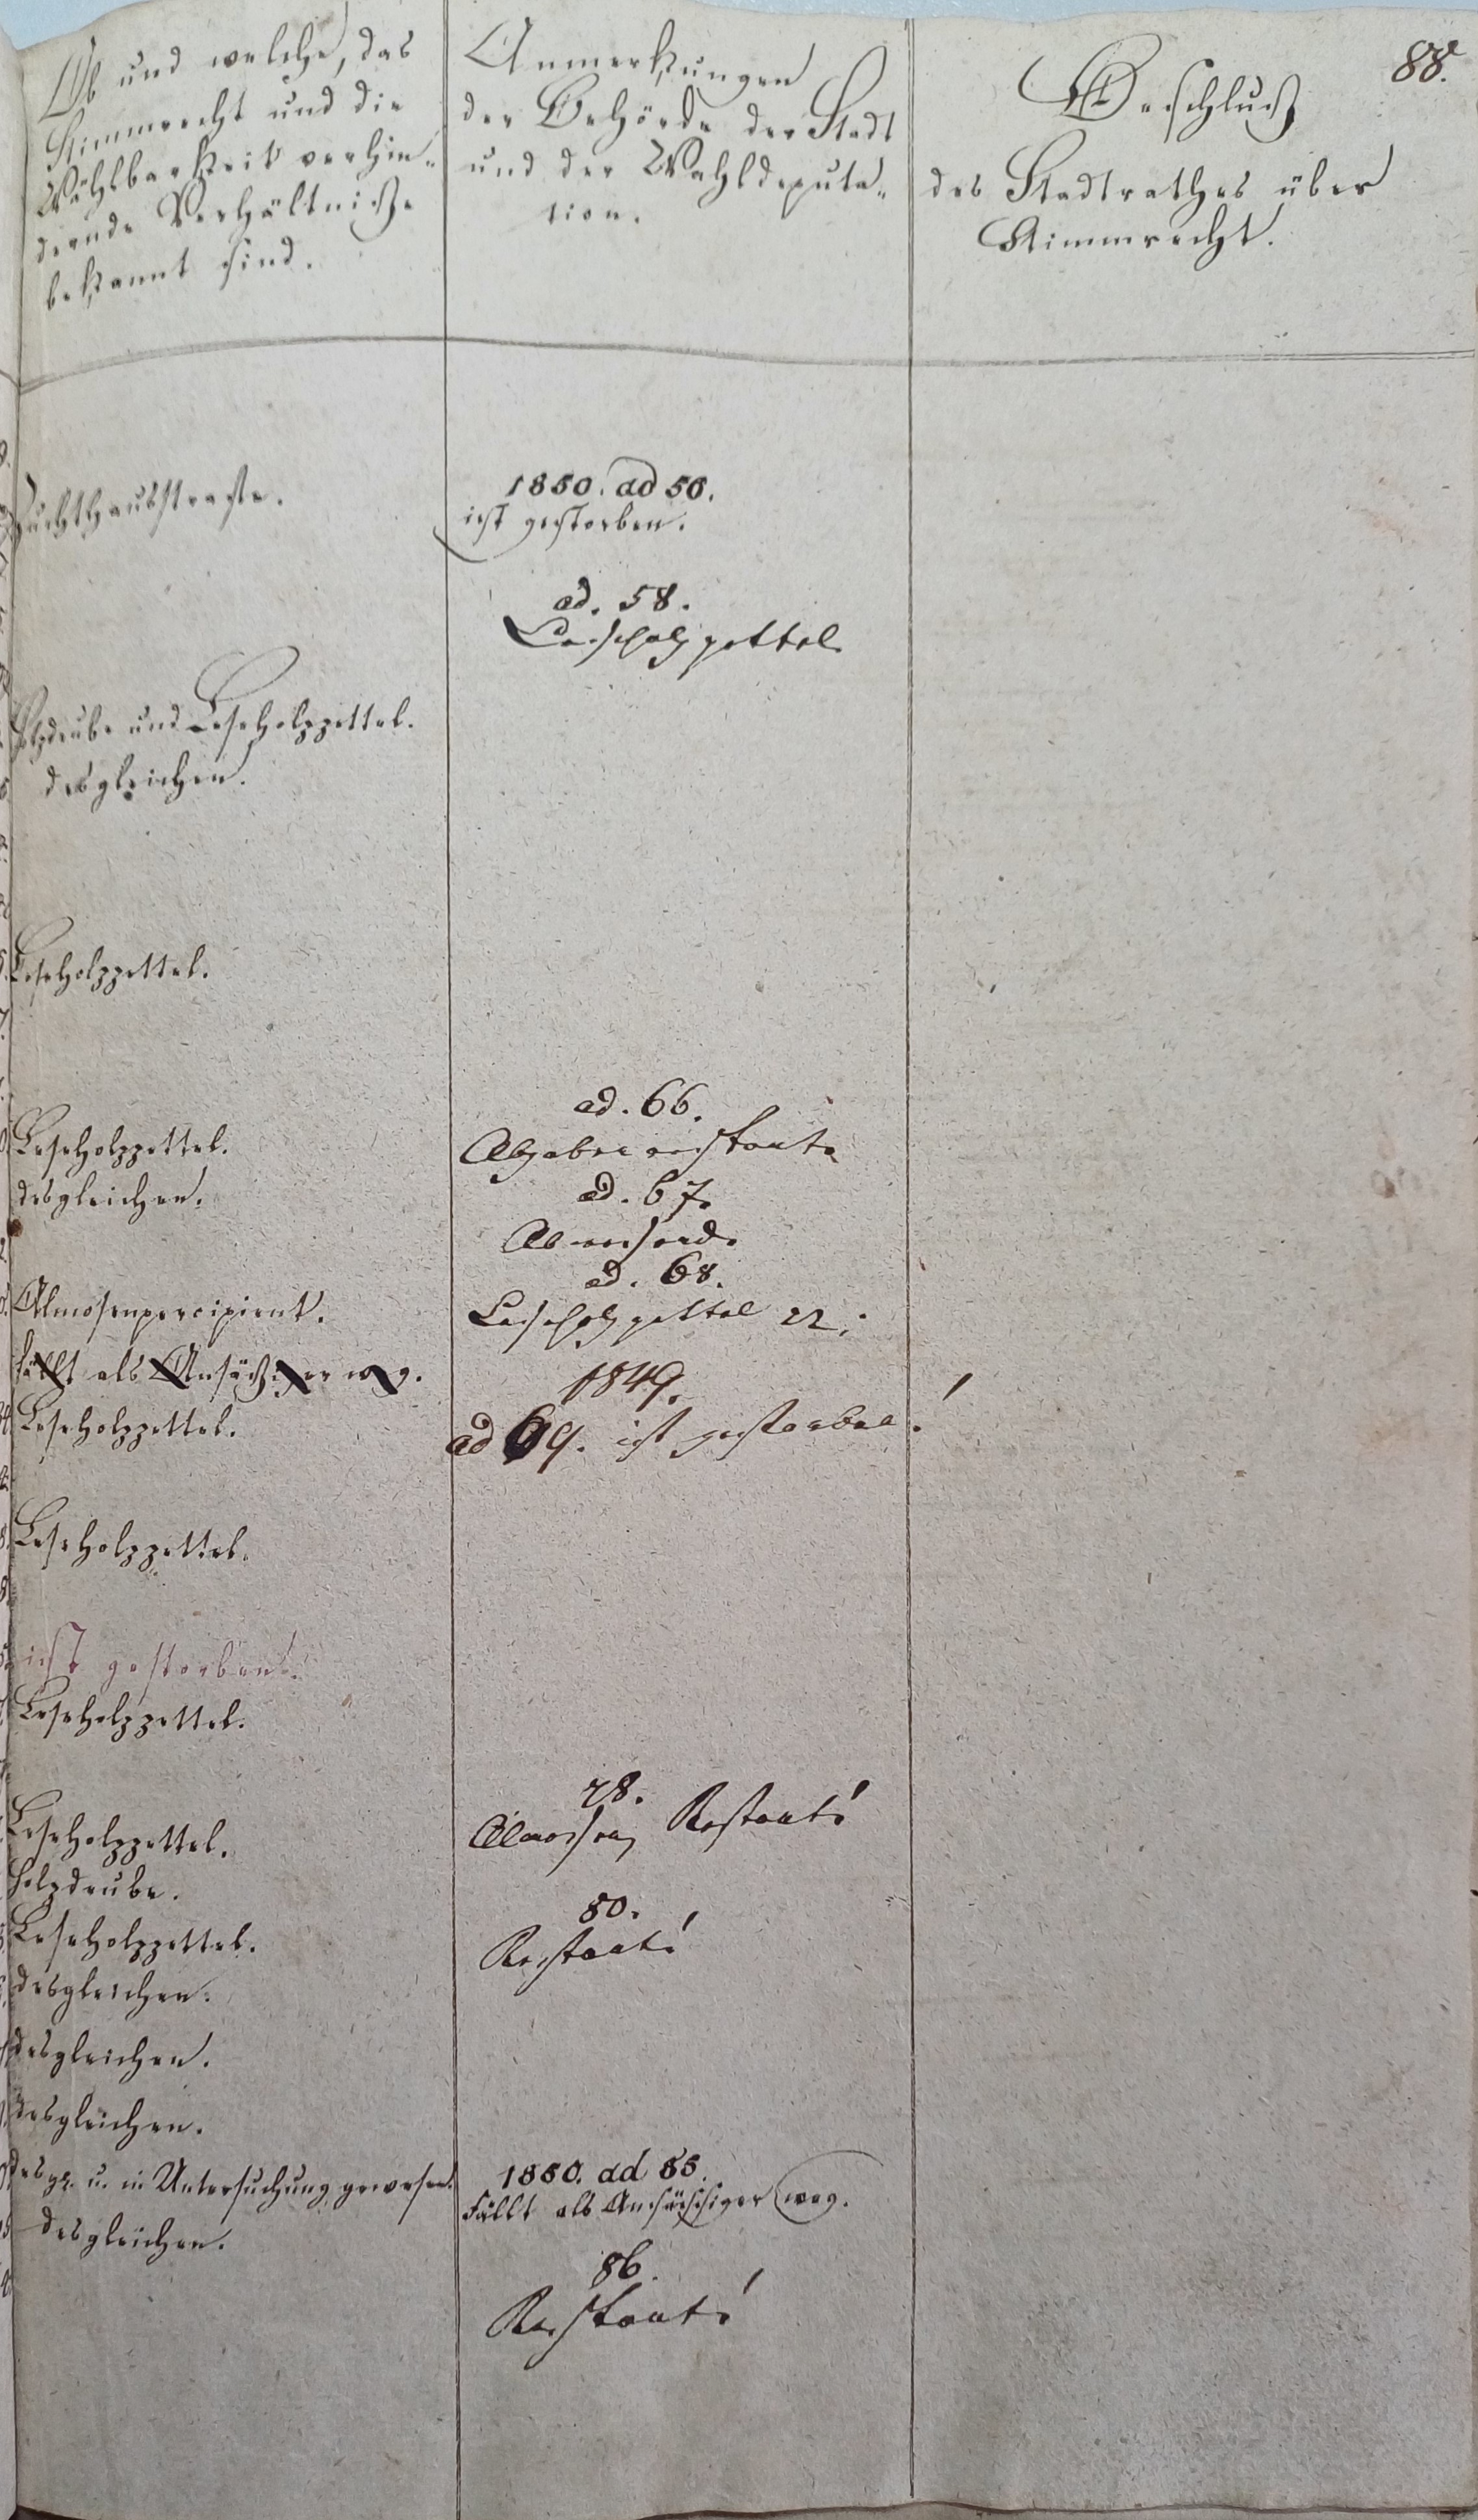 88.
Ob und welche, das
Stimmrecht und die
Wählbarkeit verhin-
dernde Verhältniße
bekannt sind.
Anmerkungen
der Behörde der Stadt
und der Wahldeputa-
tion.
Beschluß
des Stadtrathes über
Stimmrecht.
Zuchthausstrafe.
1850. ad 56.
ist gestorben.
ad. 58.
Leseholzzettel
Holzdeube und Leseholzzettel.
desgleichen.
Leseholzzettel.
ad. 66.
Leseholzzettel.
Abgabenrestant.
desgleichen.
ad. 67.
ad. 68.
Almosenpercipient.
Leseholzzettel
fällt als Ansäßiger weg.
1849.
Leseholzzettel.
ad 69. ist gestorben.
Leseholzzettel.
ist gestorben.
Leseholzzettel.
78.
Leseholzzettel.
Almosen, Restant
Holzdeube.
80.
Leseholzzettel.
Restant
desgleichen.
desgleichen.
desgleichen.
desgl. u. in Untersuchung gewesen.
1850. ad 85.
Fällt als Ansässiger weg.
desgleichen.
86.
Restant